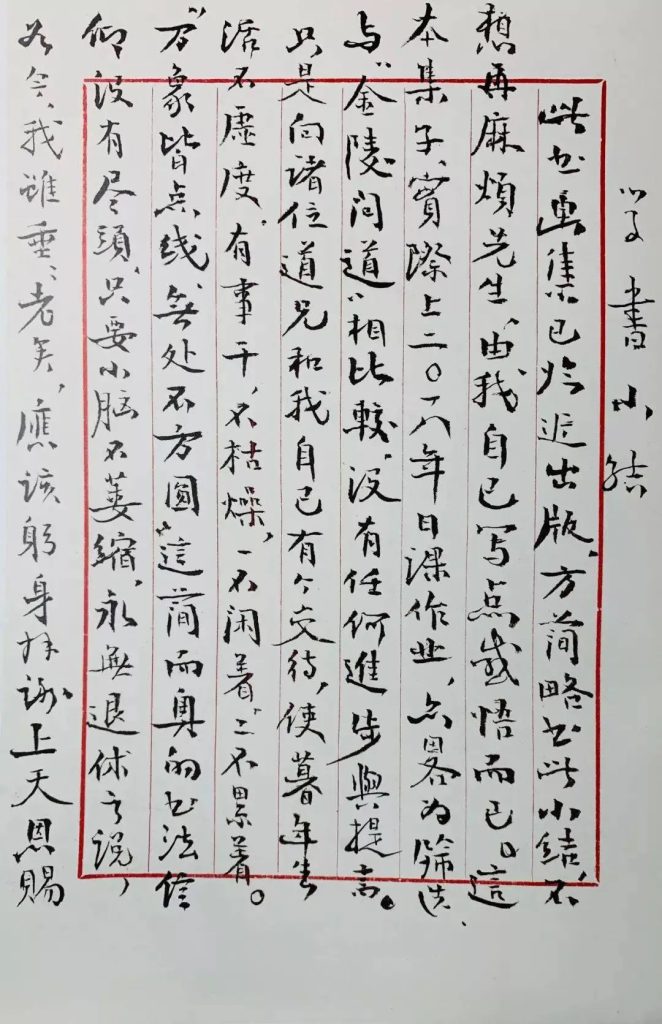 学書小结
此书画集已临近出版，方简略书此小结，不
想再麻煩先生，由我自己写点感悟而已。這
本集子，實際上二〇一八年日课作业，亦略为篩选，
与“金陵问道”相比較，没有任何進步與提高。
只是向诸位道兄和我自己有个交待，使暮年生
活不虚度，有事干，不枯燥，一不闲着，二不累着。
“万象皆点线，無处不方圆”這简而奥的书法信
仰没有尽頭，只要小脑不萎縮，永無退休之说，
如今，我虽垂垂老矣，應该躬身拜谢上天恩賜